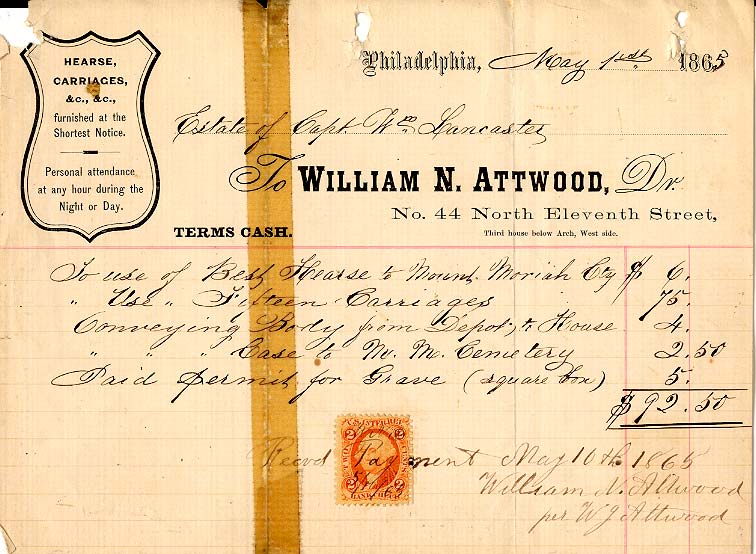 HEARSE,
CARRIAGES,
&c., &c.,
furnished at the
Shortest Notice.
Personal attendance
at any hour during the
Night or Day.
Philadelphia, May 1st 1865
Estate of Capt. Wm Lancaster
To WILLIAM N. ATTWOOD, Dr.
No. 44 North Eleventh Street,
TERMS CASH.
Third house below Arch, West side.
To use of Best Hearse to Mount Moriah Cty $ 6.
" Use " Fifteen Carriages 75.
Conveying Body from Depot, to House 4.
" " " Case to M. M. Cemetery 2.50
Paid permit for Grave (square box) 5.
$92.50
U.S. INTER. REV.
2 2
TWO CENTS
BANK CHECK
Recvd Payment May 10th 1865
William N. Attwood
per W J Attwood